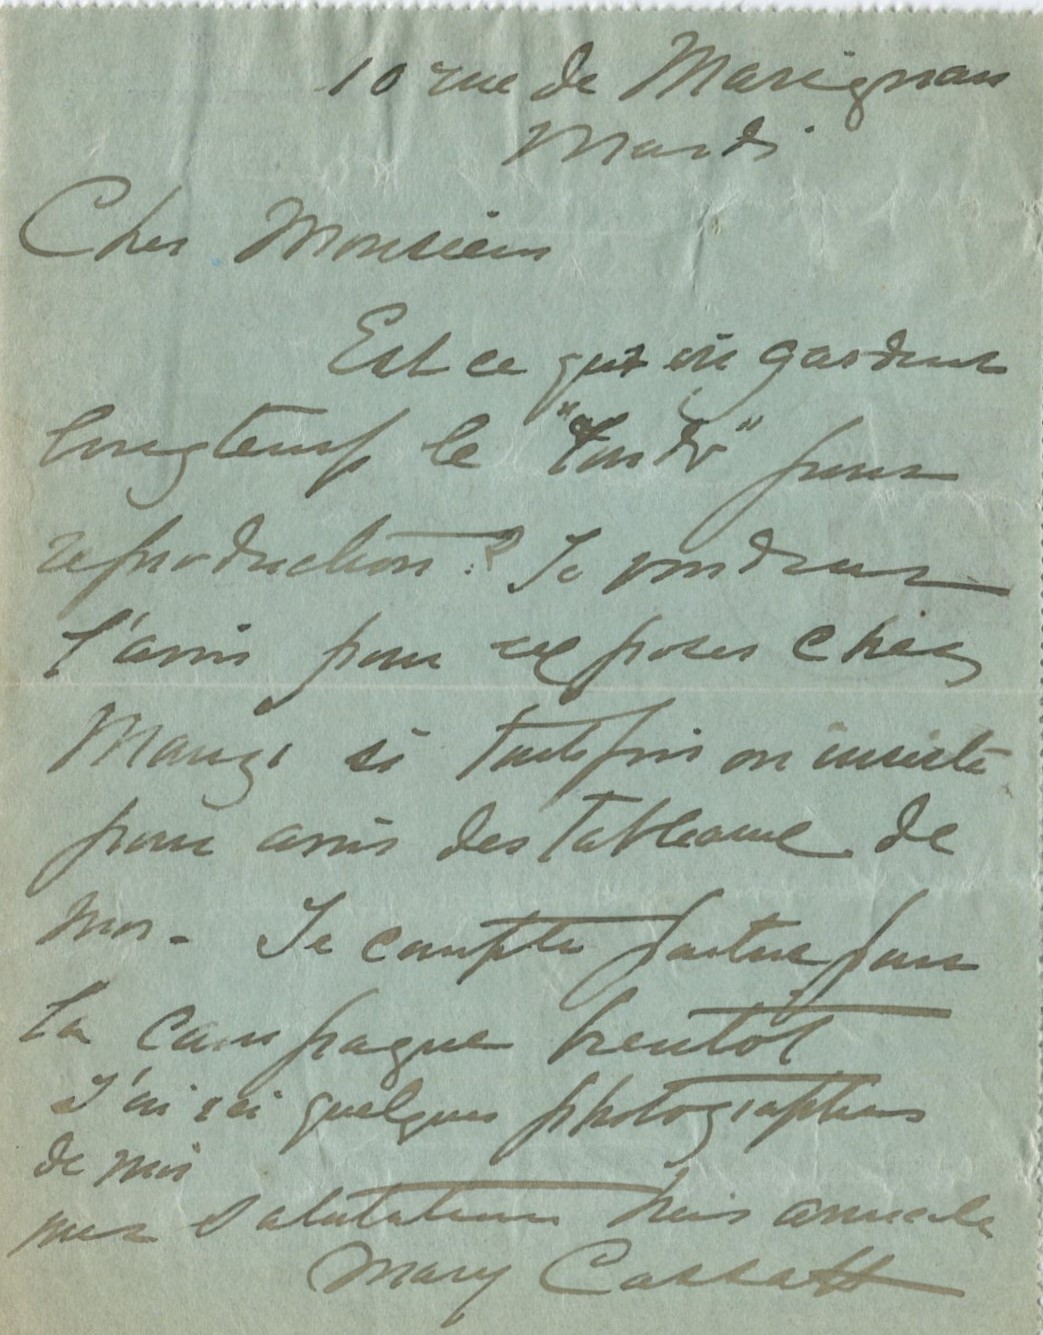 10 rue de Marignan
Mardi
Cher Monsieur
Est ce qu'on gardera
longtemps le "tondo" pour
reproduction? Je voudrais
l'avoir pour exposer chez
Manzi si toutefois on insiste
pour avoir des tableaux de
moi - Je compte partir pour
la campagne bientôt
J'ai ici quelques photographies
de moi
mes salutations très amicales
Mary Cassatt